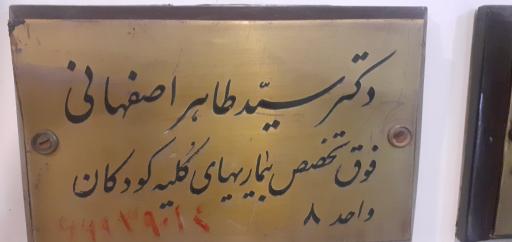 دکتر سیّد طاهر اصفهانی
فوق تخصص بیماریهای کلیه کودکان
واحد ۸